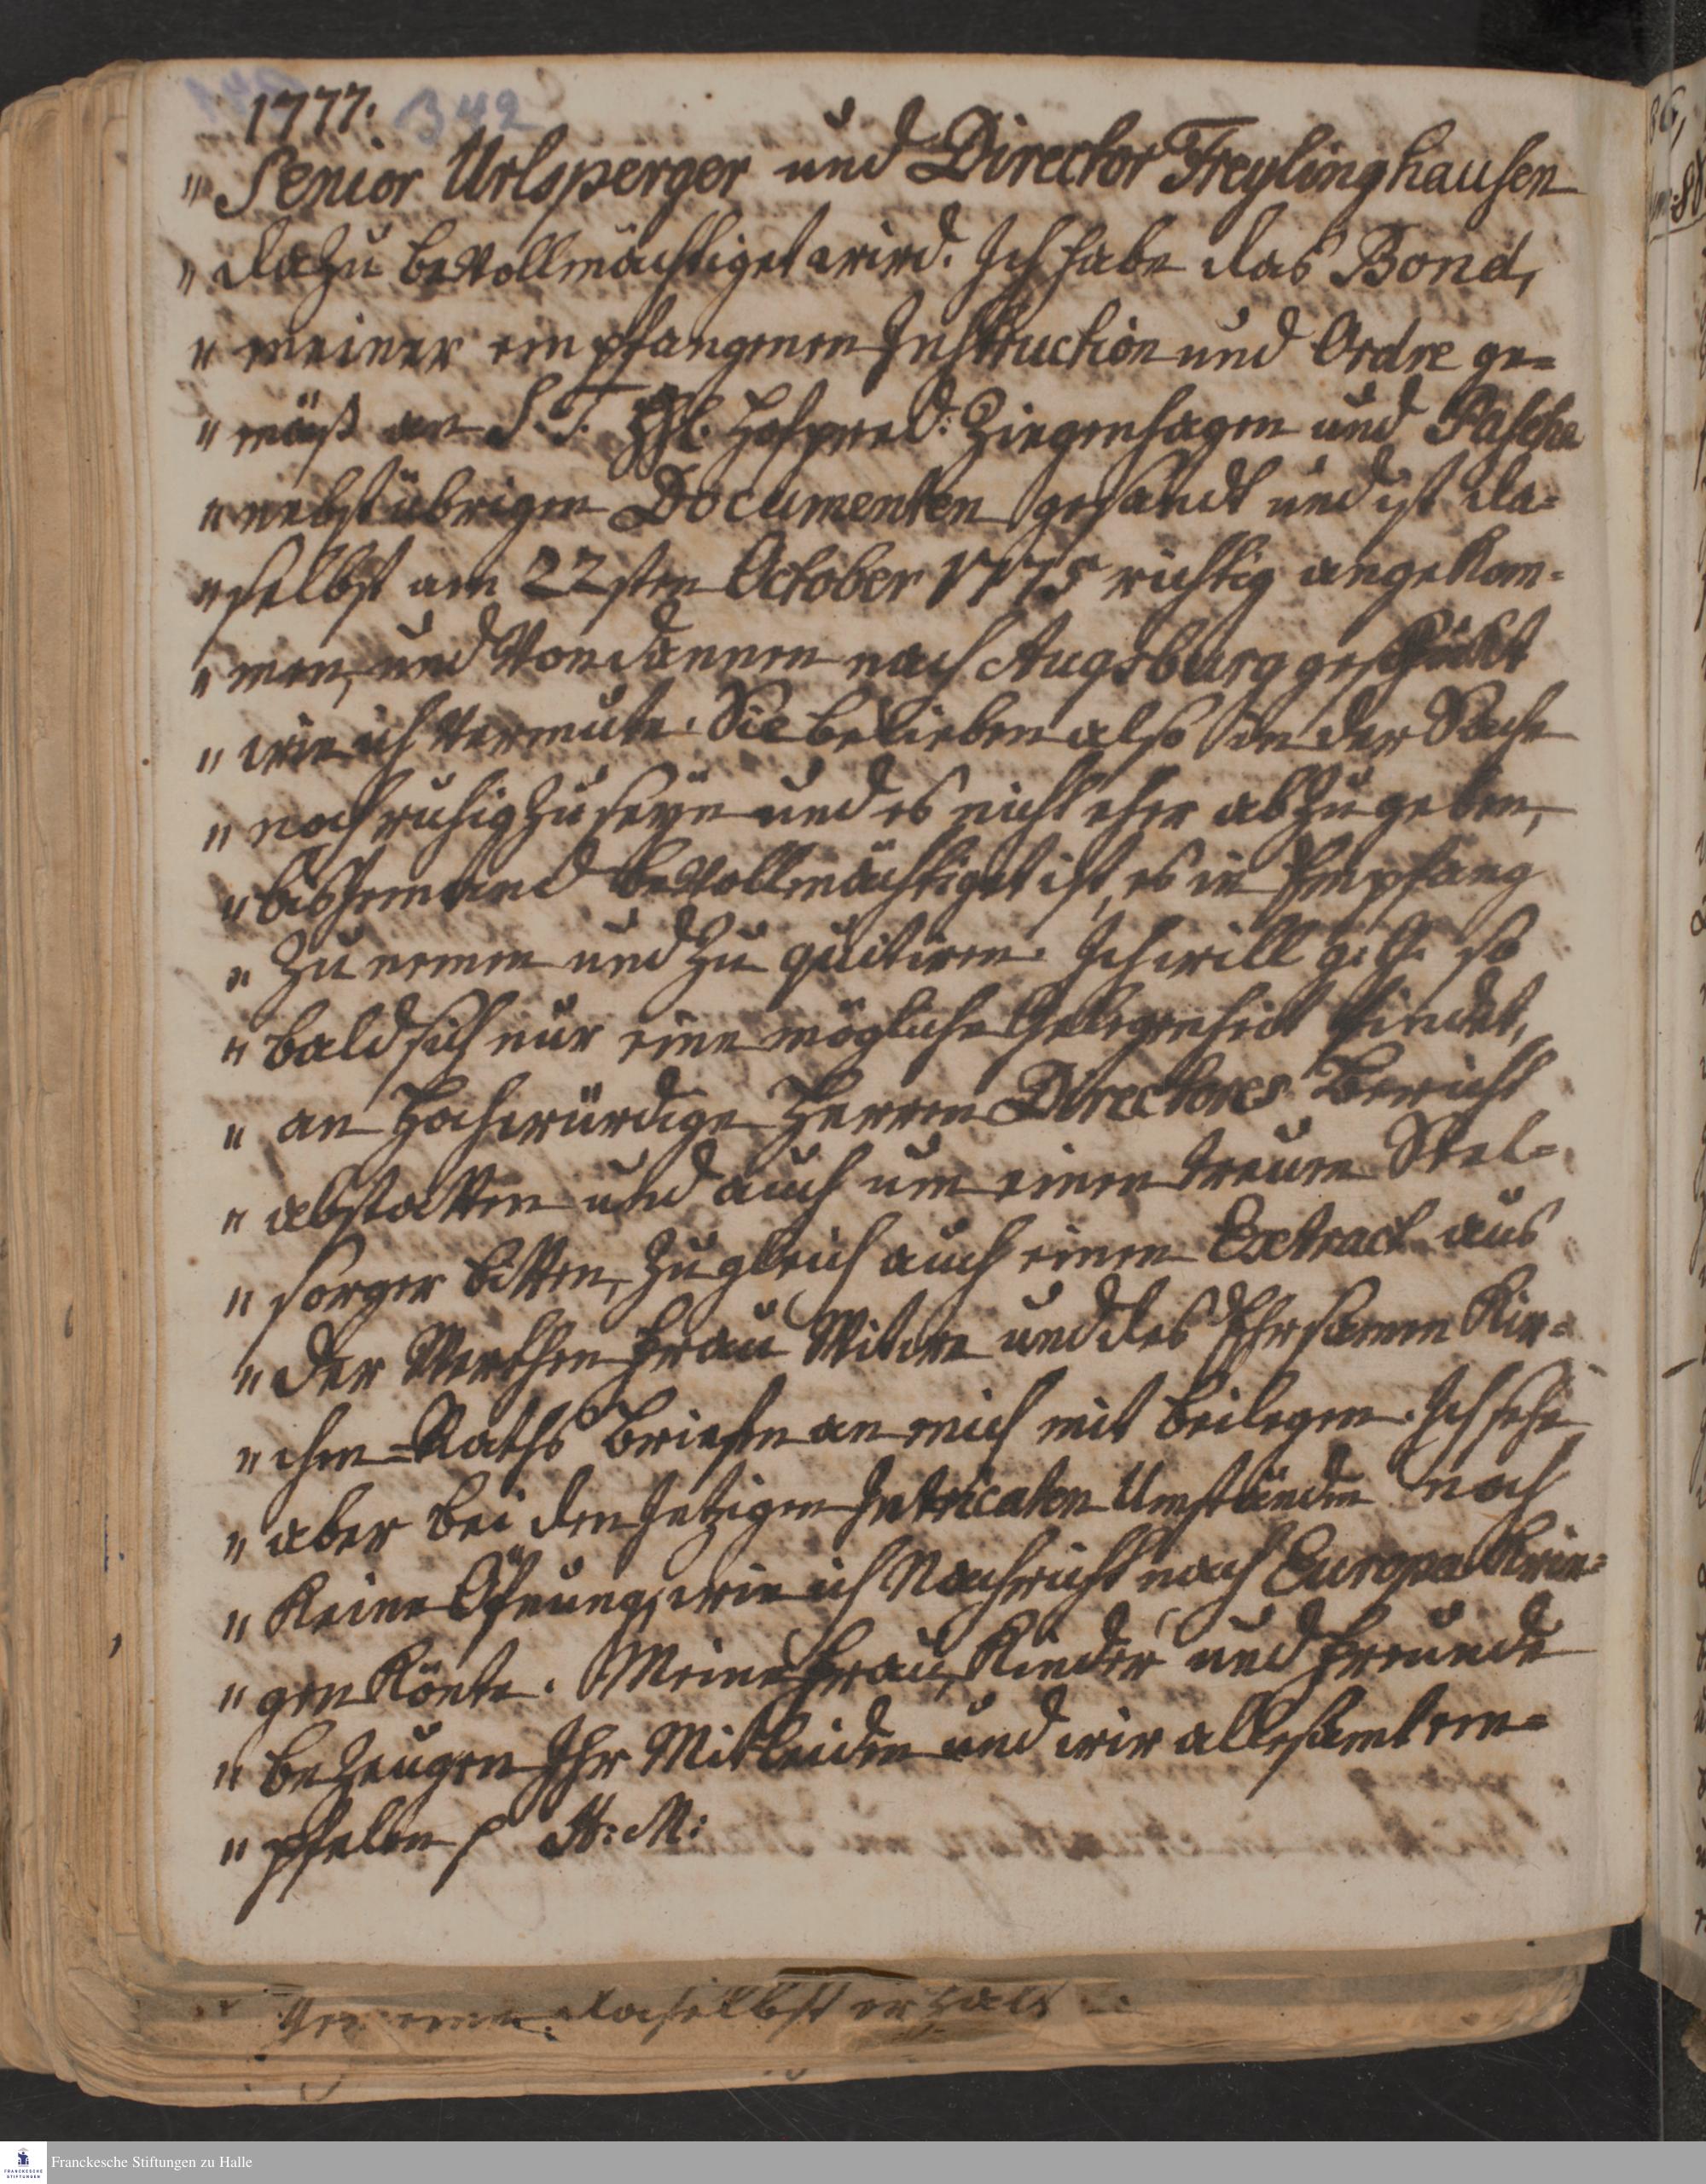 1777. 342
" Senior Urlsperger und Director Freylinghausen
" dazu bevollmächtiget wird. Ich habe das Bond,
" meiner empfangenen Instruction und Ordre ge=
" mäß an S. T. HhE. Hofpred: Ziegenhagen und Pasche
" nebst übrigen Documenten gesandt und ist da=
" selbst am 22sten October 1775 richtig angekom=
" men, und von dannen nach Augsburg geschickt
" wie ich vermute. Sie belieben also in der Sache
" noch ruhig zu seyn und es nicht eher abzugeben,
" bis jemand bevollmächtiget ist, es in Empfang
" zu nemen und zu quitiren. Ich will g. G. so
" bald sich nur eine mögliche Gelegenheit findet,
" an Hochwürdige Herren Directores Bericht
" abstatten und auch um einen treuen Seel=
" sorger bitten, zugleich auch einen Extract aus
" der Werthen Frau Witwe und des Ehrsamen Kir=
" chen=Raths Briefen an mich mit beilegen. Ich sehe
" aber bei den jetzigen Intricaten Umständen noch
" keine Öfnung, wie ich Nachricht nach Europa krie=
" gen könte. Meine Frau, Kinder und Freunde
" bezeugen Ihr Mitleiden und wir allesamt em=
" pfelen p H: M:
daselbst erhält
Franckesche Stiftungen zu Halle